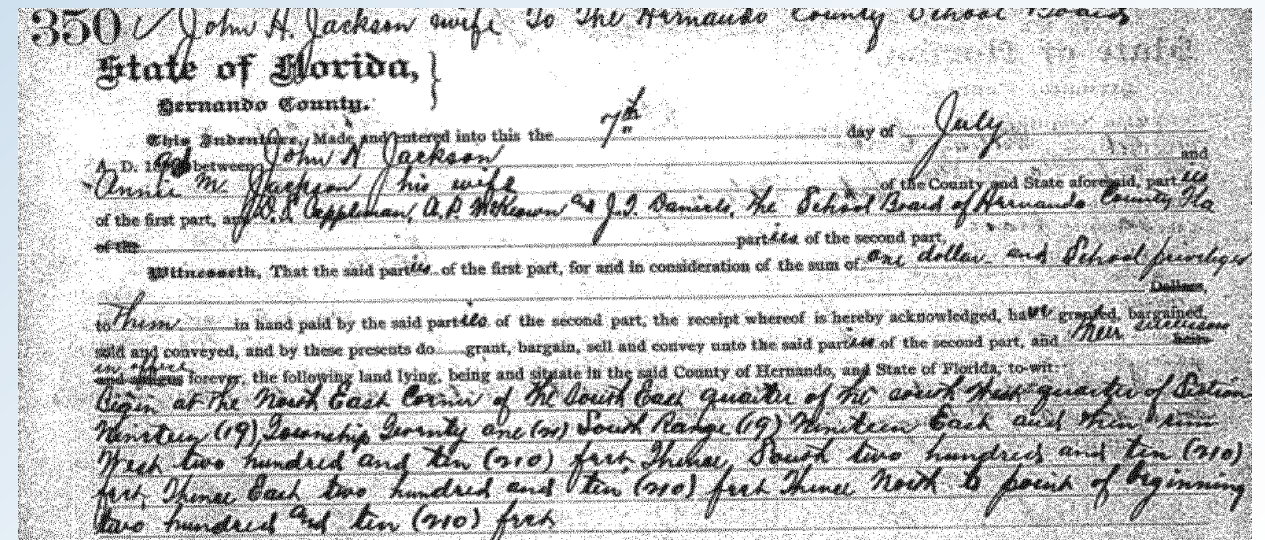 350 ✓ John H. Jackson wife To The Hernando County School Board
State of Florida, }
Hernando County.
This Indenture, Made and entered into this the 7th day of July
A. D. 190 between John H Jackson and
Annie M Jackson his wife of the County and State aforesaid, parties
of the first part, and A. P. McKeown, and J. T. Daniels, The School Board of Hernando County Fla
of the parties of the second part,
Witnesseth, That the said parties of the first part, for and in consideration of the sum of one dollar and School privileges
Dollars,
to Them in hand paid by the said parties of the second part, the receipt whereof is hereby acknowledged, have granted, bargained,
sold and conveyed, and by these presents do grant, bargain, sell and convey unto the said parties of the second part, and their successors heirs
in office
and assigns forever, the following land lying, being and situate in the said County of Hernando, and State of Florida, to-wit:
Begin at the North East Corner of the South East quarter of the south West quarter of Section
Nineteen (19) Township Twenty one (21) South Range (19) Nineteen East and then run
West two hundred and ten (210) feet, Thence South two hundred and ten (210)
feet, Thence East two hundred and ten (210) feet Thence North to point of beginning
two hundred and ten (210) feet